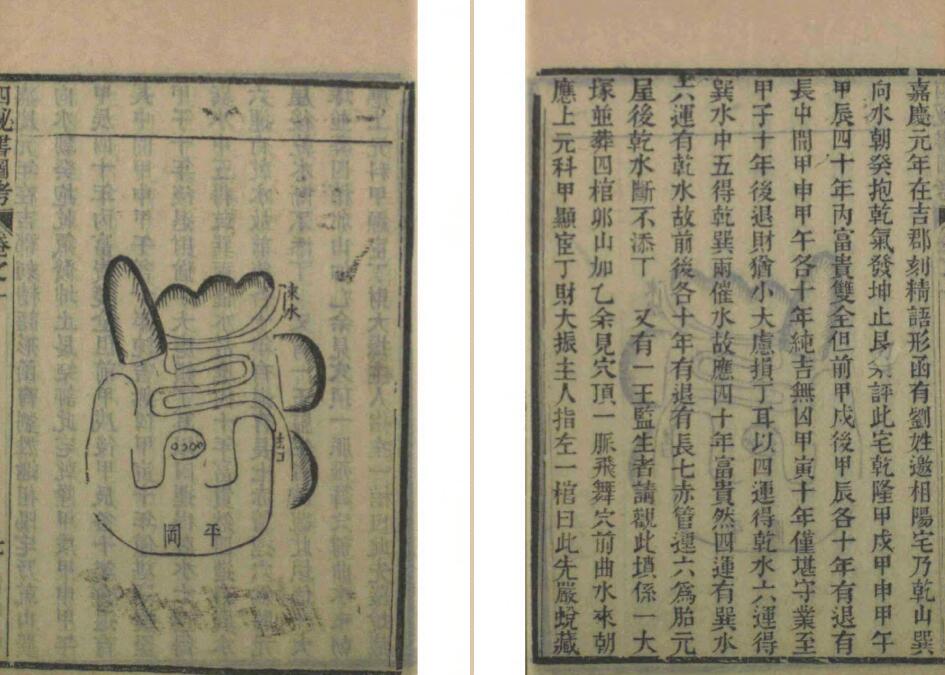 嘉慶元年在吉郡刻精語形函有劉姓邀相陽宅乃乾山巽
向水朝癸抱乾氣發坤止艮余評此宅乾隆甲戌甲申甲午
甲辰四十年丙富貴雙全但前甲戌後甲辰各十年有退有
長中間甲申甲午各十年純吉無凶甲寅十年僅堪守業至
甲子十年後退財猶小大慮損丁耳以四運得乾水六運得
巽水中五得乾巽兩催水故應四十年富貴然四運有巽水
六運有乾水故前後各十年有退有長七赤管運六爲胎元
屋後乾水斷不添丁 又有一王監生者請觀此墳係一大
塚並葬四棺卯山加乙余見穴頂一脈飛舞穴前曲水來朝
應上元科甲顯宦丁財大振主人指左一棺曰此先嚴蛻藏
四秘書圖考
卷之一
來水
去口
平岡